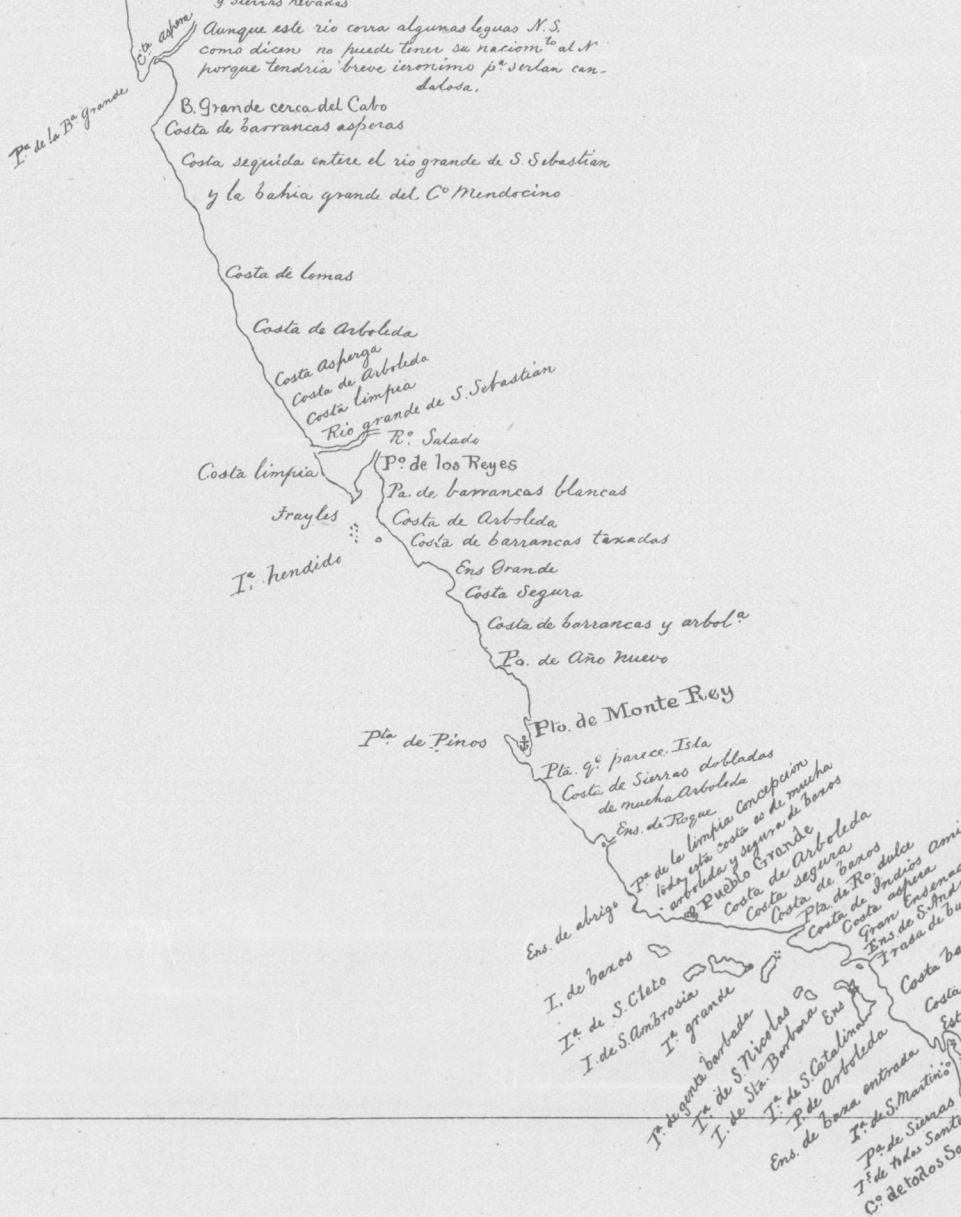 y sierras nevadas
Cta aspera
Aunque este rio corra algunas leguas N.S.
como dicen no puede tener su naciomto al N
porque tendria breve ieronimo pa serlan can-
dalosa.
Pta de la Ba grande
B. Grande cerca del Cabo
Costa de barrancas asperas
Costa seguida entire el rio grande de S. Sebastian
y la bahia grande del Co Mendocino
Costa de lomas
Costa de Arboleda
Costa Asperga
Costa de Arboleda
Costa limpia
Rio grande de S. Sebastian
Ro. Salado
Costa limpia
Po. de los Reyes
Pa. de barrancas blancas
Frayles
Costa de Arboleda
Costa de barrancas taxadas
Ia. hendido
Ens Grande
Costa Segura
Costa de barrancas y arbola
Po. de Año nuevo
Pto. de Monte Rey
Pta de Pinos
Pta. qe parece Isla
Costa de Sierras dobladas
de mucha Arboleda
Ens. de Roque
Pa de la limpia Concepcion
toda esta costa es de mucha
arboleda y segura de baxos
Pueblo Grande
Costa de Arboleda
Costa segura
Costa de baxos
Pta. de Ro. dulce
Costa de Indios Ami
Costa aspera
Gran Ensena
Ens. de S. And
Trasa de bu
Costa ba
Costa
Est
Ens. de abrigo
I. de baxos
Ia de S. Cleto
I. de S. Ambrosia
Ia grande
Ia de gente barbada
Ia de S. Nicolas
I. de Sta. Barbara
Ens
Ia de S. Catalina
P. de Arboleda
Ens. de baxa entrada
Ia de S. Martin
Pa de Sierras
Is de todos Sant
Co. de todos Sa